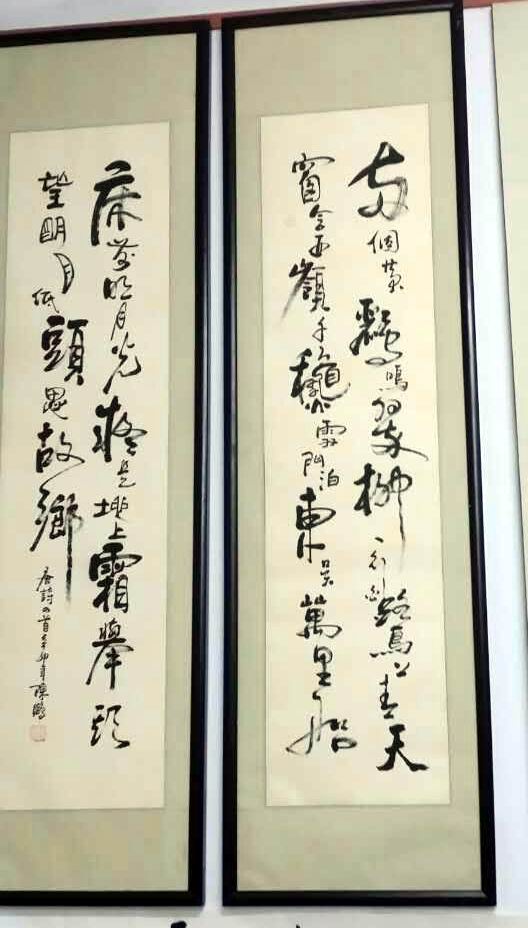 两個黄鸝鳴翠柳一行白鷺上青天
窗含西嶺千龝雪門泊東吴萬里船
床前明月光疑是地上霜舉頭
望明月低頭思故鄉
唐詩四首辛卯年陳